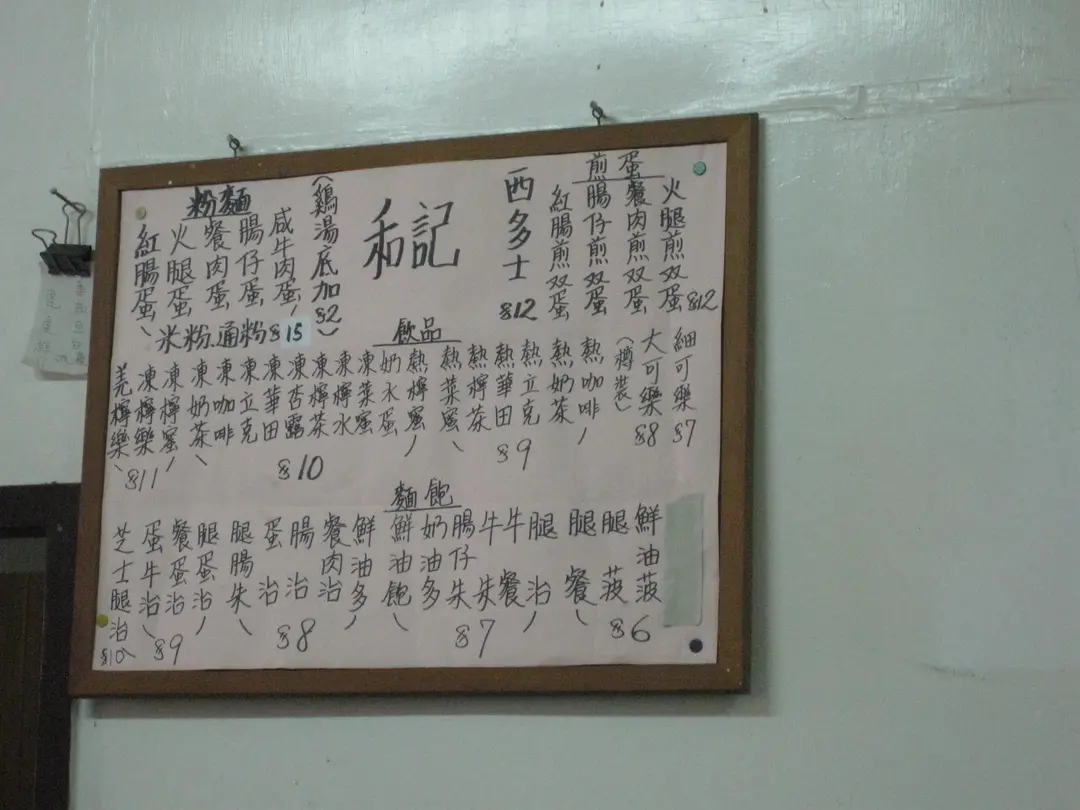 和記
煎蛋
火腿煎双蛋
餐肉煎双蛋
腸仔煎双蛋
紅腸煎双蛋
$12
西多士
$12
(鷄湯底加$2)
粉麵
咸牛肉蛋
腸仔蛋
餐肉蛋
火腿蛋
紅腸蛋
米粉.通粉$15
飲品
細可樂
$7
大可樂
$8
(樽裝)
熱咖啡
熱奶茶
熱立克
熱華田
熱檸茶
熱菜蜜
$9
熱檸蜜
奶水蛋
凍菜蜜
凍檸水
凍檸茶
凍杏露
凍華田
凍立克
凍咖啡
凍奶茶
$10
凍檸蜜
凍檸樂
羗檸樂
$11
麵飽
鮮油菠
腿菠
腿餐
$6
腿治
牛餐
牛𠂒
腸仔𠂒
奶油多
鮮油飽
$7
鮮油多
餐肉治
腸治
蛋治
腿腸𠂒
$8
腿蛋治
餐蛋治
蛋牛治
$9
芝士腿治
$10